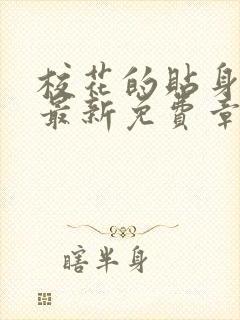 校花的贴身
最新免費章
瞎半身